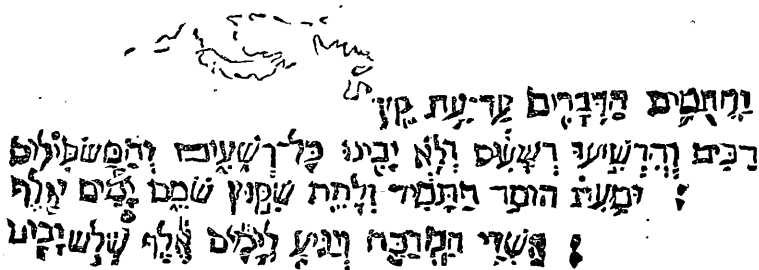 וַחֲתֻמִים הַדְּבָרִים עַד־עֵת קֵץ
רַבִּים וְהִרְשִׁיעוּ רְשָׁעִים וְלֹא יָבִינוּ כָּל־רְשָׁעִים וְהַמַּשְׂכִּלִים
: וּמֵעֵת הוּסַר הַתָּמִיד וְלָתֵת שִׁקּוּץ שֹׁמֵם יָמִים אֶלֶף
: אַשְׁרֵי הַמְחַכֶּה וְיַגִּיעַ לְיָמִים אֶלֶף שְׁלֹשׁ